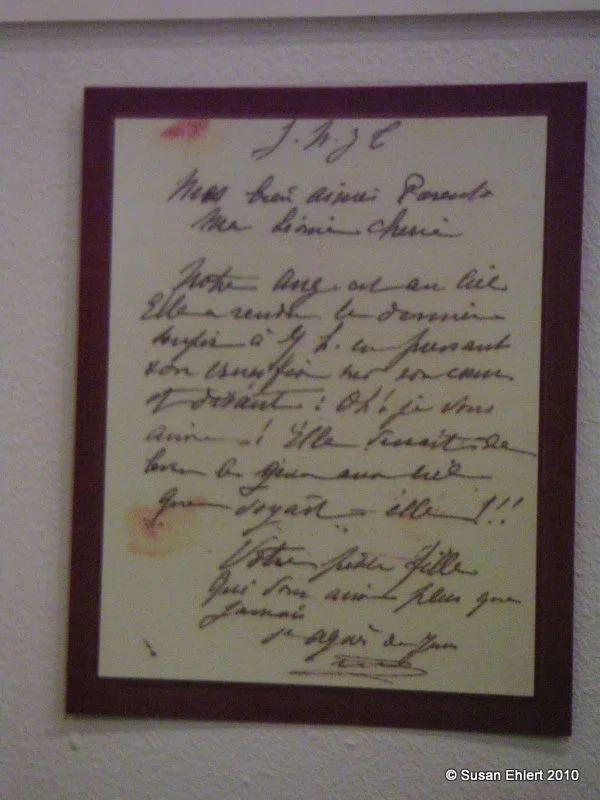 J. M. J. T.
Mes bien aimés Parents
Ma Léonie chérie
Notre Ange est au ciel
Elle a rendu le dernier
soupir à 7 h. en pressant
son crucifix sur son cœur
et disant : Oh! je vous
aime! Elle venait de
lever les yeux au ciel
que voyait-elle!!!
Votre petite fille
Qui vous aime plus que
Jamais
Sr Agnès de Jésus
© Susan Ehlert 2010